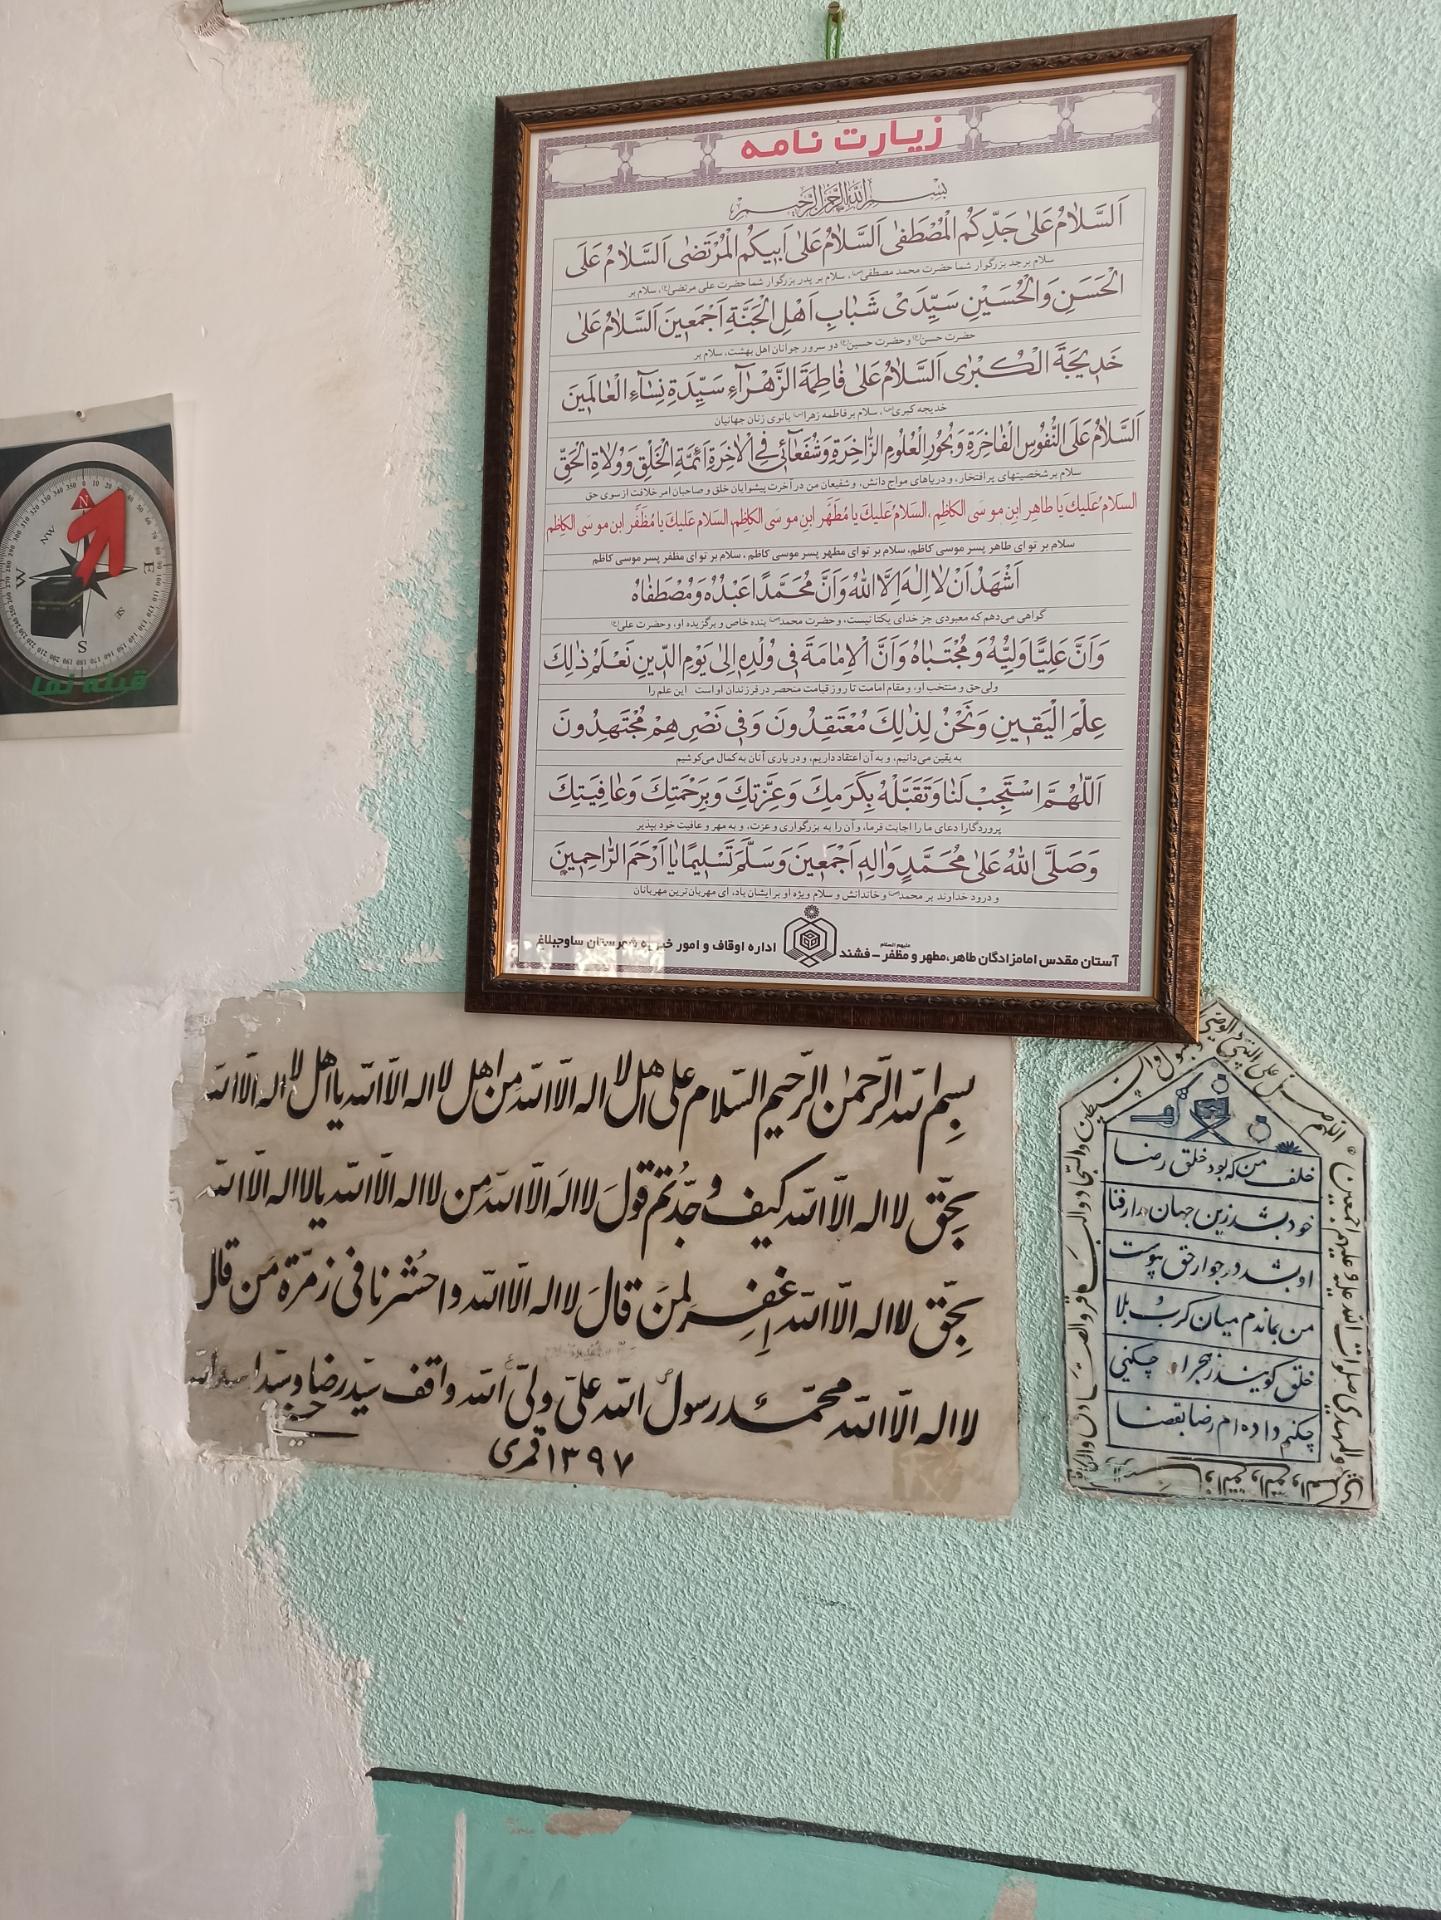 زیارت نامه
بسم الله الرحمن الرحیم
اَلسَّلامُ عَلیٰ جَدِّکُمُ الْمُصْطَفیٰ اَلسَّلامُ عَلیٰ اَبیکُمُ الْمُرْتَضیٰ اَلسَّلامُ عَلَی
سلام بر جد بزرگوار شما حضرت محمد مصطفی(ص)، سلام بر پدر بزرگوار شما حضرت علی مرتضی(ع)، سلام بر
الْحَسَنِ وَالْحُسَیْنِ سَیِّدَیْ شَبٰابِ اَهْلِ الْجَنَّةِ اَجْمَعینَ اَلسَّلامُ عَلیٰ
حضرت حسن(ع) و حضرت حسین(ع) دو سرور جوانان اهل بهشت، سلام بر
خَدیجَةَ الْکُبْرٰی اَلسَّلامُ عَلیٰ فٰاطِمَةَ الزَّهْرٰآءِ سَیِّدَةِ نِسٰآءِ الْعٰالَمینَ
خدیجه کبری(س)، سلام بر فاطمه زهرا(س) بانوی زنان جهانیان
اَلسَّلامُ عَلَی النُّفُوسِ الْفٰاخِرَةِ وَ بُحُورِ الْعُلُومِ الزّٰاخِرَةِ وَ شُفَعٰآئی فِی الْاٰخِرَةِ اَئِمَّةِ الْخَلْقِ وَ وُلاةِ الْحَقِّ
سلام بر شخصیتهای پر افتخار، و دریاهای مواج دانش، و شفیعان من در آخرت پیشوایان خلق و صاحبان امر خلافت از سوی حق
السلامُ عَلیكَ یا طاهِرِ ابنِ موسَی الکاظِمِ، السلامُ عَلیكَ یا مُطَهَّر ابنِ موسَی الکاظِم، السلام علیكَ یا مُظَفَّر ابن موسَی الکاظِم
سلام بر تو ای طاهر پسر موسی کاظم، سلام بر تو ای مطهر پسر موسی کاظم، سلام بر تو ای مظفر پسر موسی کاظم
اَشْهَدُ اَنْ لٰا اِلٰهَ اِلَّا اللّٰهُ وَ اَنَّ مُحَمَّدًا عَبْدُهُ وَ مُصْطَفٰاهُ
گواهی می‌دهم که معبودی جز خدای یکتا نیست، و حضرت محمد(ص) بنده خاص و برگزیده او، و حضرت علی(ع)
وَ اَنَّ عَلِیًّا وَلِیُّهُ وَ مُجْتَبٰاهُ وَ اَنَّ الْاِمٰامَةَ فی وُلْدِهِ اِلیٰ یَوْمِ الدّینِ نَعْلَمُ ذٰلِكَ
ولی حق و منتخب او، و مقام امامت تا روز قیامت منحصر در فرزندان او است این علم را
عِلْمَ الْیَقینِ وَ نَحْنُ لِذٰلِكَ مُعْتَقِدُونَ وَ فی نَصْرِهِمْ مُجْتَهِدُونَ
به یقین می‌دانیم، و به آن اعتقاد داریم، و در یاری آنان به کمال می‌کوشیم
اَللّٰهُمَّ اسْتَجِبْ لَنٰا وَ تَقَبَّلْهُ بِکَرَمِكَ وَ عِزَّتِكَ وَ بِرَحْمَتِكَ وَ عٰافِیَتِكَ
پروردگارا دعای ما را اجابت فرما، و آن را به بزرگواری و عزت، و به مهر و عافیت خود بپذیر
وَ صَلَّی اللّٰهُ عَلیٰ مُحَمَّدٍ وَ اٰلِهِ اَجْمَعینَ وَ سَلَّمَ تَسْلیمًا یٰا اَرْحَمَ الرّٰاحِمینَ
و درود خداوند بر محمد(ص) و خاندانش و سلام ویژه او بر ایشان باد، ای مهربان‌ترین مهربانان
آستان مقدس امامزادگان طاهر، مطهر و مظفر علیهم السلام - فشند اداره اوقاف و امور خیریه شهرستان ساوجبلاغ
N
NW
W
E
SE
S
قبله نما
بسم الله الرحمن الرحیم السلام علی اهل لا اله الا الله من اهل لا اله الا الله یا اهل لا اله الا الله
بحق لا اله الا الله کیف وجدتم قول لا اله الا الله من لا اله الا الله یا لا اله الا الله
بحق لا اله الا الله اغفر لمن قال لا اله الا الله واحشرنا فی زمرة من قال
لا اله الا الله محمد رسول الله علی ولی الله واقف سید رضا و سید اسدالله
۱۳۹۷ قمری
خلف من که بود خلق رضا
خود بشد زین جهان دار فنا
او بشد در جوار حق پیوست
من بماندم میان کرب و بلا
خلق گویند ز هجر او چکنی
چکنم داده ام رضا بقضا
اللهم صل علی النبی والوصی والبتول والسبطین والسجاد والباقر والصادق والکاظم
والمهدی صلوات الله علیه و علیهم اجمعین